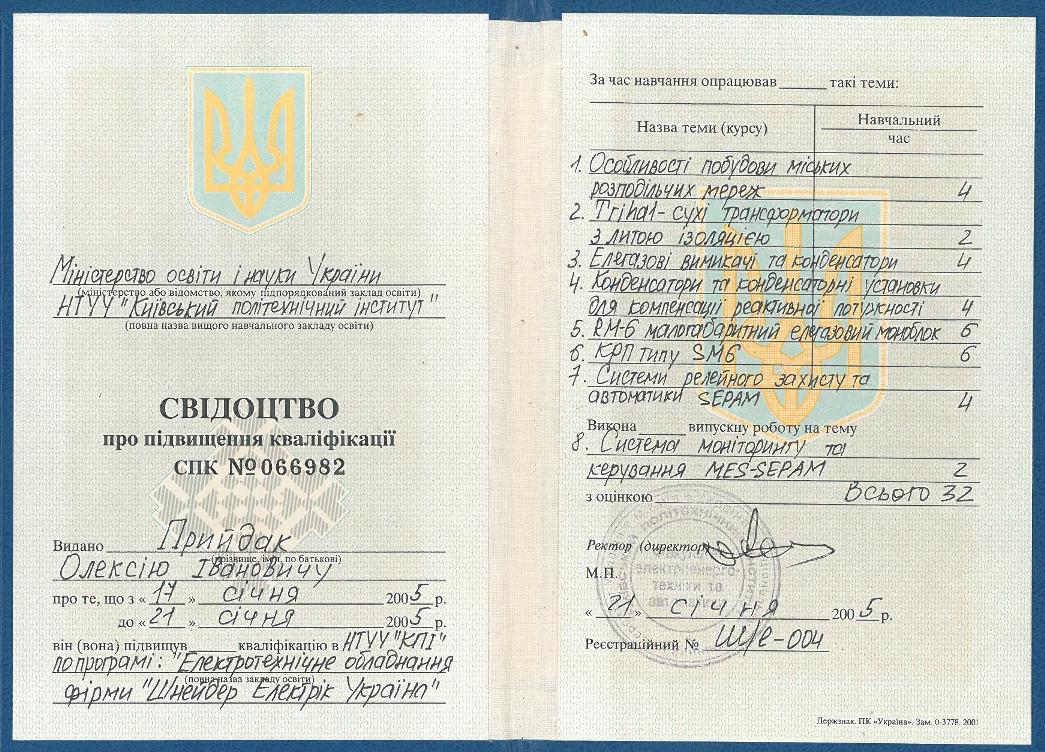 Міністерство освіти і науки України
(міністерство або відомство, якому підпорядкований заклад освіти)
НТУУ "Київський політехнічний інститут"
(повна назва вищого навчального закладу освіти)
СВІДОЦТВО
про підвищення кваліфікації
СПК №066982
Видано Прийдак
(прізвище, ім'я, по батькові)
Олексію Івановичу
про те, що з «17» січня 2005 р.
до «21» січня 2005 р.
він (вона) підвищув кваліфікацію в НТУУ "КПІ"
по програмі: "Електротехнічне обладнання
(повна назва закладу освіти)
фірми "Шнейдер Електрік Україна"
За час навчання опрацював такі теми:
Назва теми (курсу)
Навчальний
час
1. Особливості побудови міських
розподільчих мереж 4
2. Trihal - сухі трансформатори
з литою ізоляцією 2
3. Елегазові вимикачі та конденсатори 4
4. Конденсатори та конденсаторні установки
для компенсації реактивної потужності 4
5. RM-6 малогабаритний елегазовий моноблок 6
6. КРП типу SM6 6
7. Системи релейного захисту та
автоматики SEPAM 4
Викона випускну роботу на тему
8. Система моніторингу та
керування MES-SEPAM 2
з оцінкою Всього 32
Ректор (директор)
М.П.
електроенерго-
техніки та
«21» січня 2005 р.
Реєстраційний № Ш/е-004
Держзнак. ПК «Україна». Зам. 0-3778. 2001